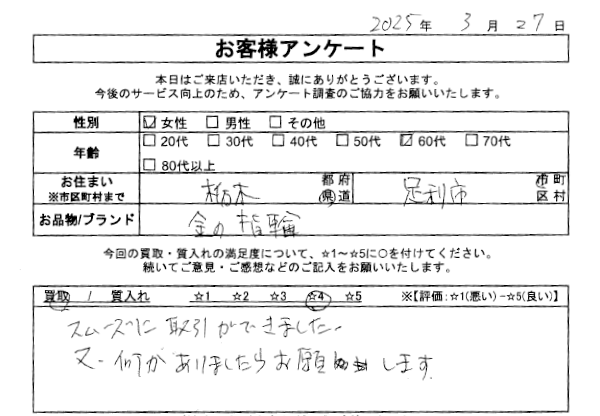 2025年 3月 27日
お客様アンケート
本日はご来店いただき、誠にありがとうございます。
今後のサービス向上のため、アンケート調査のご協力をお願いいたします。
性別 ☑ 女性 □ 男性 □ その他
年齢 □ 20代 □ 30代 □ 40代 □ 50代 ☑ 60代 □ 70代
□ 80代以上
お住まい ※市区町村まで 栃木 都府県道 足利市 市町区村
お品物/ブランド 金の指輪
今回の買取・質入れの満足度について、☆1～☆5に○を付けてください。
続いてご意見・ご感想などのご記入をお願いいたします。
買取 / 質入れ ☆1 ☆2 ☆3 ☆4 ☆5 ※【評価:☆1(悪い)-☆5(良い)】
スムーズに取引ができました。
又、何かありましたらお願いします